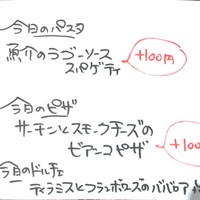 今日のパスタ
魚介のラグーソース
スパゲティ
+100円
今日のピザ
サーモンとスモークチーズの
ビアンコピザ
+100
今日のドルチェ
ティラミスとフランボワーズのババロア